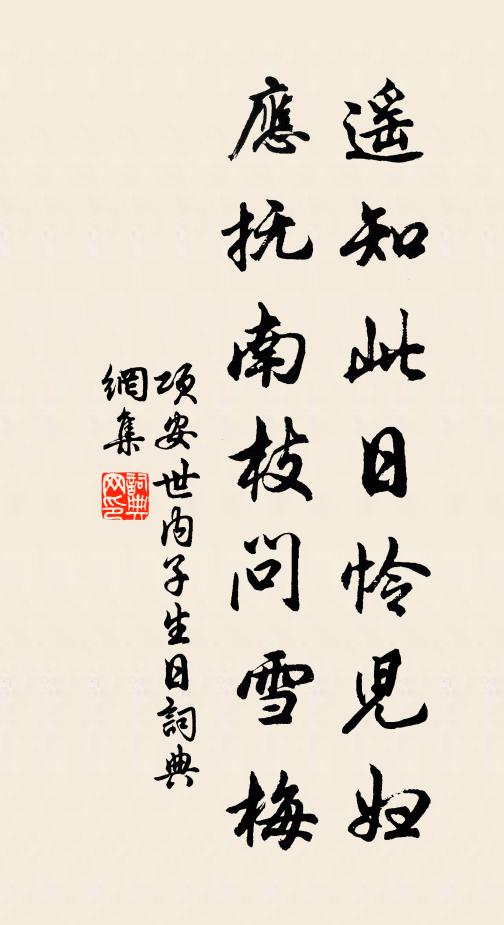 遥知此日怜児妇
應抚南枝問雪梅
項安世内子生日詞典
網集
詞典网印